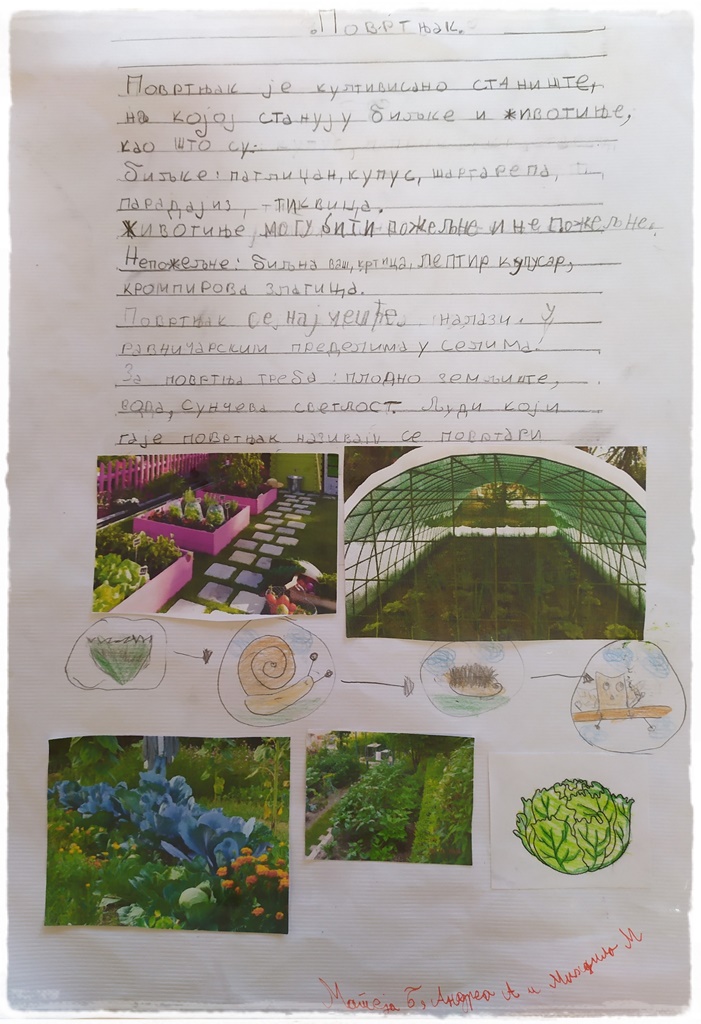 Повртњак.
Повртњак је култивисано станиште,
на којој станују биљке и животиње,
као што су:
биљке: патлиџан, купус, шаргарепа,
парадајиз, тиквица.
Животиње могу бити пожељне и не пожељне.
Непожељне: биљна ваш, кртица, лептир купусар,
кромпирова златица.
Повртњак се најчешће налази у
равничарским пределима у селима.
За повртња треба: плодно земљиште,
вода, сунчева светлост. Људи који
гаје повртњак називају се повртари
Матеја Б, Андреа А и Михаило М